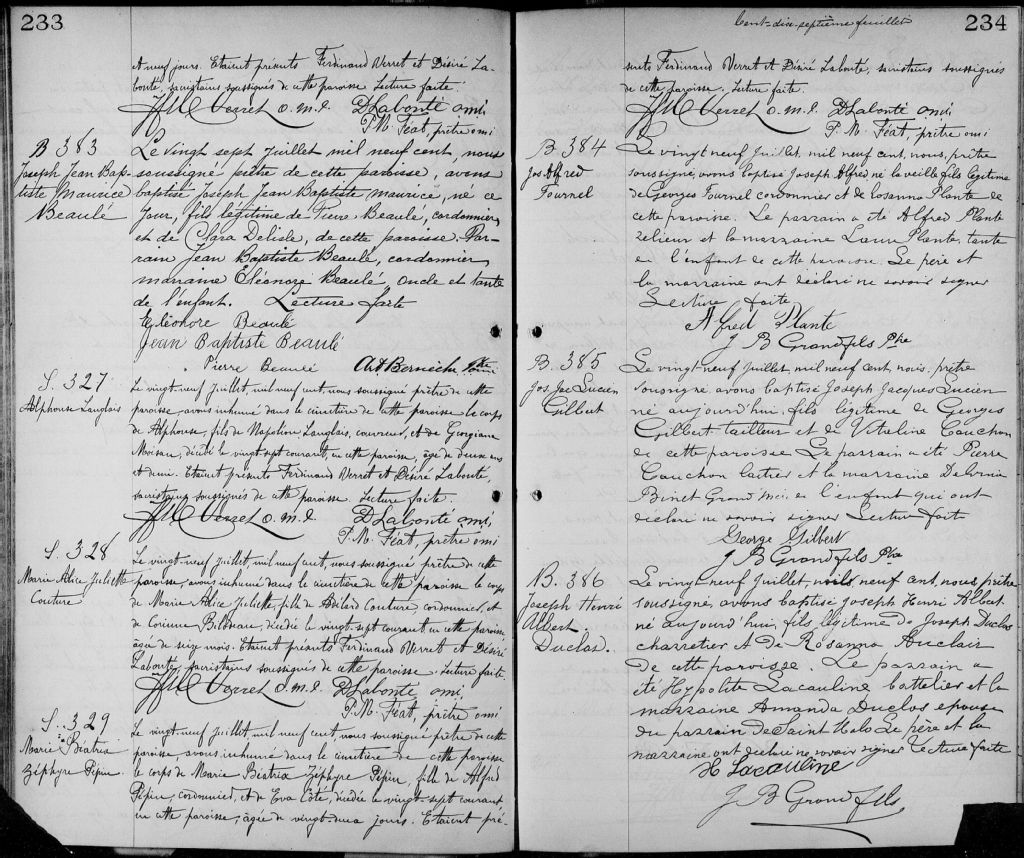 233
et neuf jours. Etaient présents Ferdinand Verret et Désiré La-
bonté, sacristains soussignés de cette paroisse. Lecture faite.
JFM Verret o.m.i. D Labonté omi
P. M. Féat, prêtre omi
B 383
Joseph Jean Bap-
tiste Maurice
Beaulé
Le vingt sept Juillet mil neuf cent, nous
soussigné prêtre de cette paroisse, avons
baptisé Joseph Jean Baptiste Maurice, né ce
jour, fils légitime de Pierre Beaulé, cordonnier,
et de Clara Delisle, de cette paroisse. Par-
rain Jean Baptiste Beaulé, cordonnier,
marraine Eléonore Beaulé oncle et tante
de l'enfant. Lecture faite
Eléonore Beaulé
Jean Baptiste Beaulé
Pierre Beaulé
S. 327
Alphonse Langlois
Le vingt neuf Juillet, mil neuf cent, nous soussigné prêtre de cette
paroisse, avons inhumé dans le cimetière de cette paroisse le corps
de Alphonse, fils de Napoléon Langlois, courrier, et de Georgiana
Moisan, décédé le vingt-sept courant en cette paroisse, âgé de deux ans
et demi. Etaient présents Ferdinand Verret et Désiré Labonté,
sacristains soussignés de cette paroisse. Lecture faite.
JFM Verret o.m.i. D Labonté omi,
P. M. Féat, prêtre omi
S. 328
Marie Alice Juliette
Couture
Le vingt-neuf Juillet, mil neuf cent, nous soussigné prêtre de cette
paroisse, avons inhumé dans le cimetière de cette paroisse le corps
de Marie Alice Juliette, fille de Adélard Couture, cordonnier, et
de Corinne Bilodeau, décédée le vingt-sept courant en cette paroisse,
âgée de seize mois. Etaient présents Ferdinand Verret et Désiré
Labonté, sacristains soussignés de cette paroisse. Lecture faite.
JFM Verret o.m.i. D Labonté omi,
P. M. Féat, prêtre omi
S. 329
Marie Béatrix
Zéphyre Pépin
Le vingt neuf Juillet, mil neuf cent, nous soussigné prêtre de cette
paroisse, avons inhumé dans le cimetière de cette paroisse
le corps de Marie Béatrix Zéphyre Pépin, fille de Alfred
Pépin, cordonnier, et de Eva Côté, décédée le vingt sept courant
en cette paroisse, âgée de vingt deux jours. Etaient pré-
Cent-dix-septième feuillet
234
sents Ferdinand Verret et Désiré Labonté, sacristains soussignés
de cette paroisse. Lecture faite.
JFM Verret o.m.i. D Labonté omi,
P. M. Féat, prêtre omi
B. 384
Jos Alfred
Fournel
Le vingt neuf Juillet, mil neuf cent, nous, prêtre
soussigné, avons baptisé Joseph Alfred né la veille fils légitime
de Georges Fournel cordonnier et de Rosanna Plante de
cette paroisse. Le parrain a été Alfred Plante
relieur et la marraine Laura Plante, tante
de l'enfant de cette paroisse. Le père et
la marraine ont déclaré ne savoir signer
Lecture faite
Alfred Plante
J B Grandfils Ptre
B. 385
Jos Jac Lucien
Gilbert
Le vingt neuf Juillet mil neuf cent nous, prêtre
soussigné avons baptisé Joseph Jacques Lucien
né aujourd'hui, fils légitime de Georges
Gilbert tailleur et de Vitaline Cauchon
de cette paroisse Le parrain a été Pierre
Cauchon et la marraine
Binet Grand de l'enfant qui ont
déclaré ne savoir signer Lecture faite
George Gilbert
J B Grandfils Ptre
B. 386
Joseph Henri
Albert
Duclos.
Le vingt neuf Juillet, mil neuf cent, nous, prêtre
soussigné, avons baptisé Joseph Henri Albert
né aujourd'hui, fils légitime de Joseph Duclos
charretier et de Rosanna Auclair
de cette paroisse. Le parrain a
été Hypolite Lacauline battelier et la
marraine Amanda Duclos épouse
du parrain de Saint Malo Le père et la
marraine ont déclaré ne savoir signer Lecture faite
H Lacauline
J B Grandfils